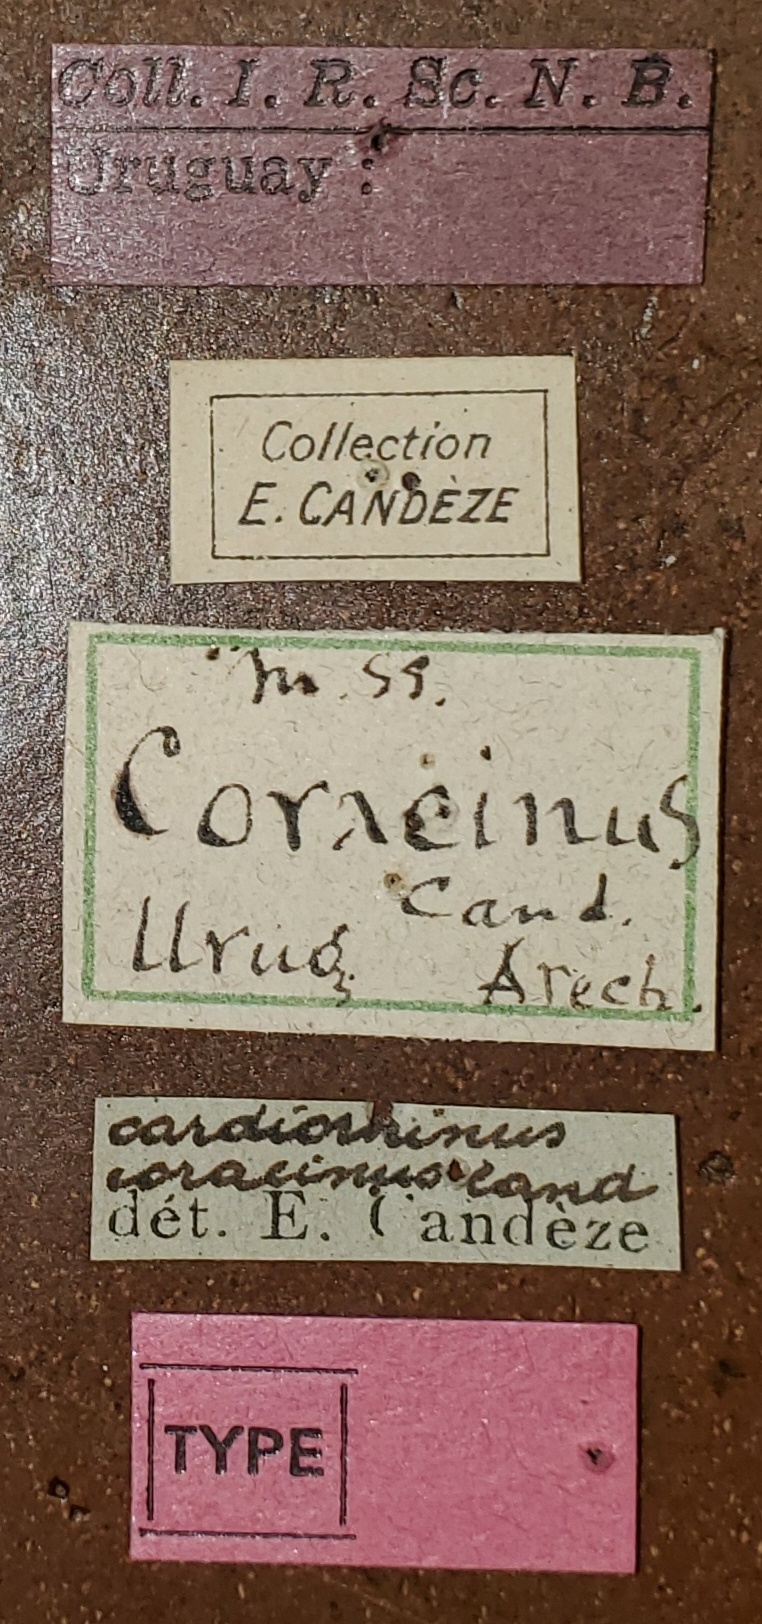 Coll. I. R. Sc. N. B.
Uruguay :
Collection
E. CANDÈZE
m. ss.
Coracinus
Cand.
Urug. Arech.
cardiorhinus
coracinus Cand
dét. E. Candèze
TYPE